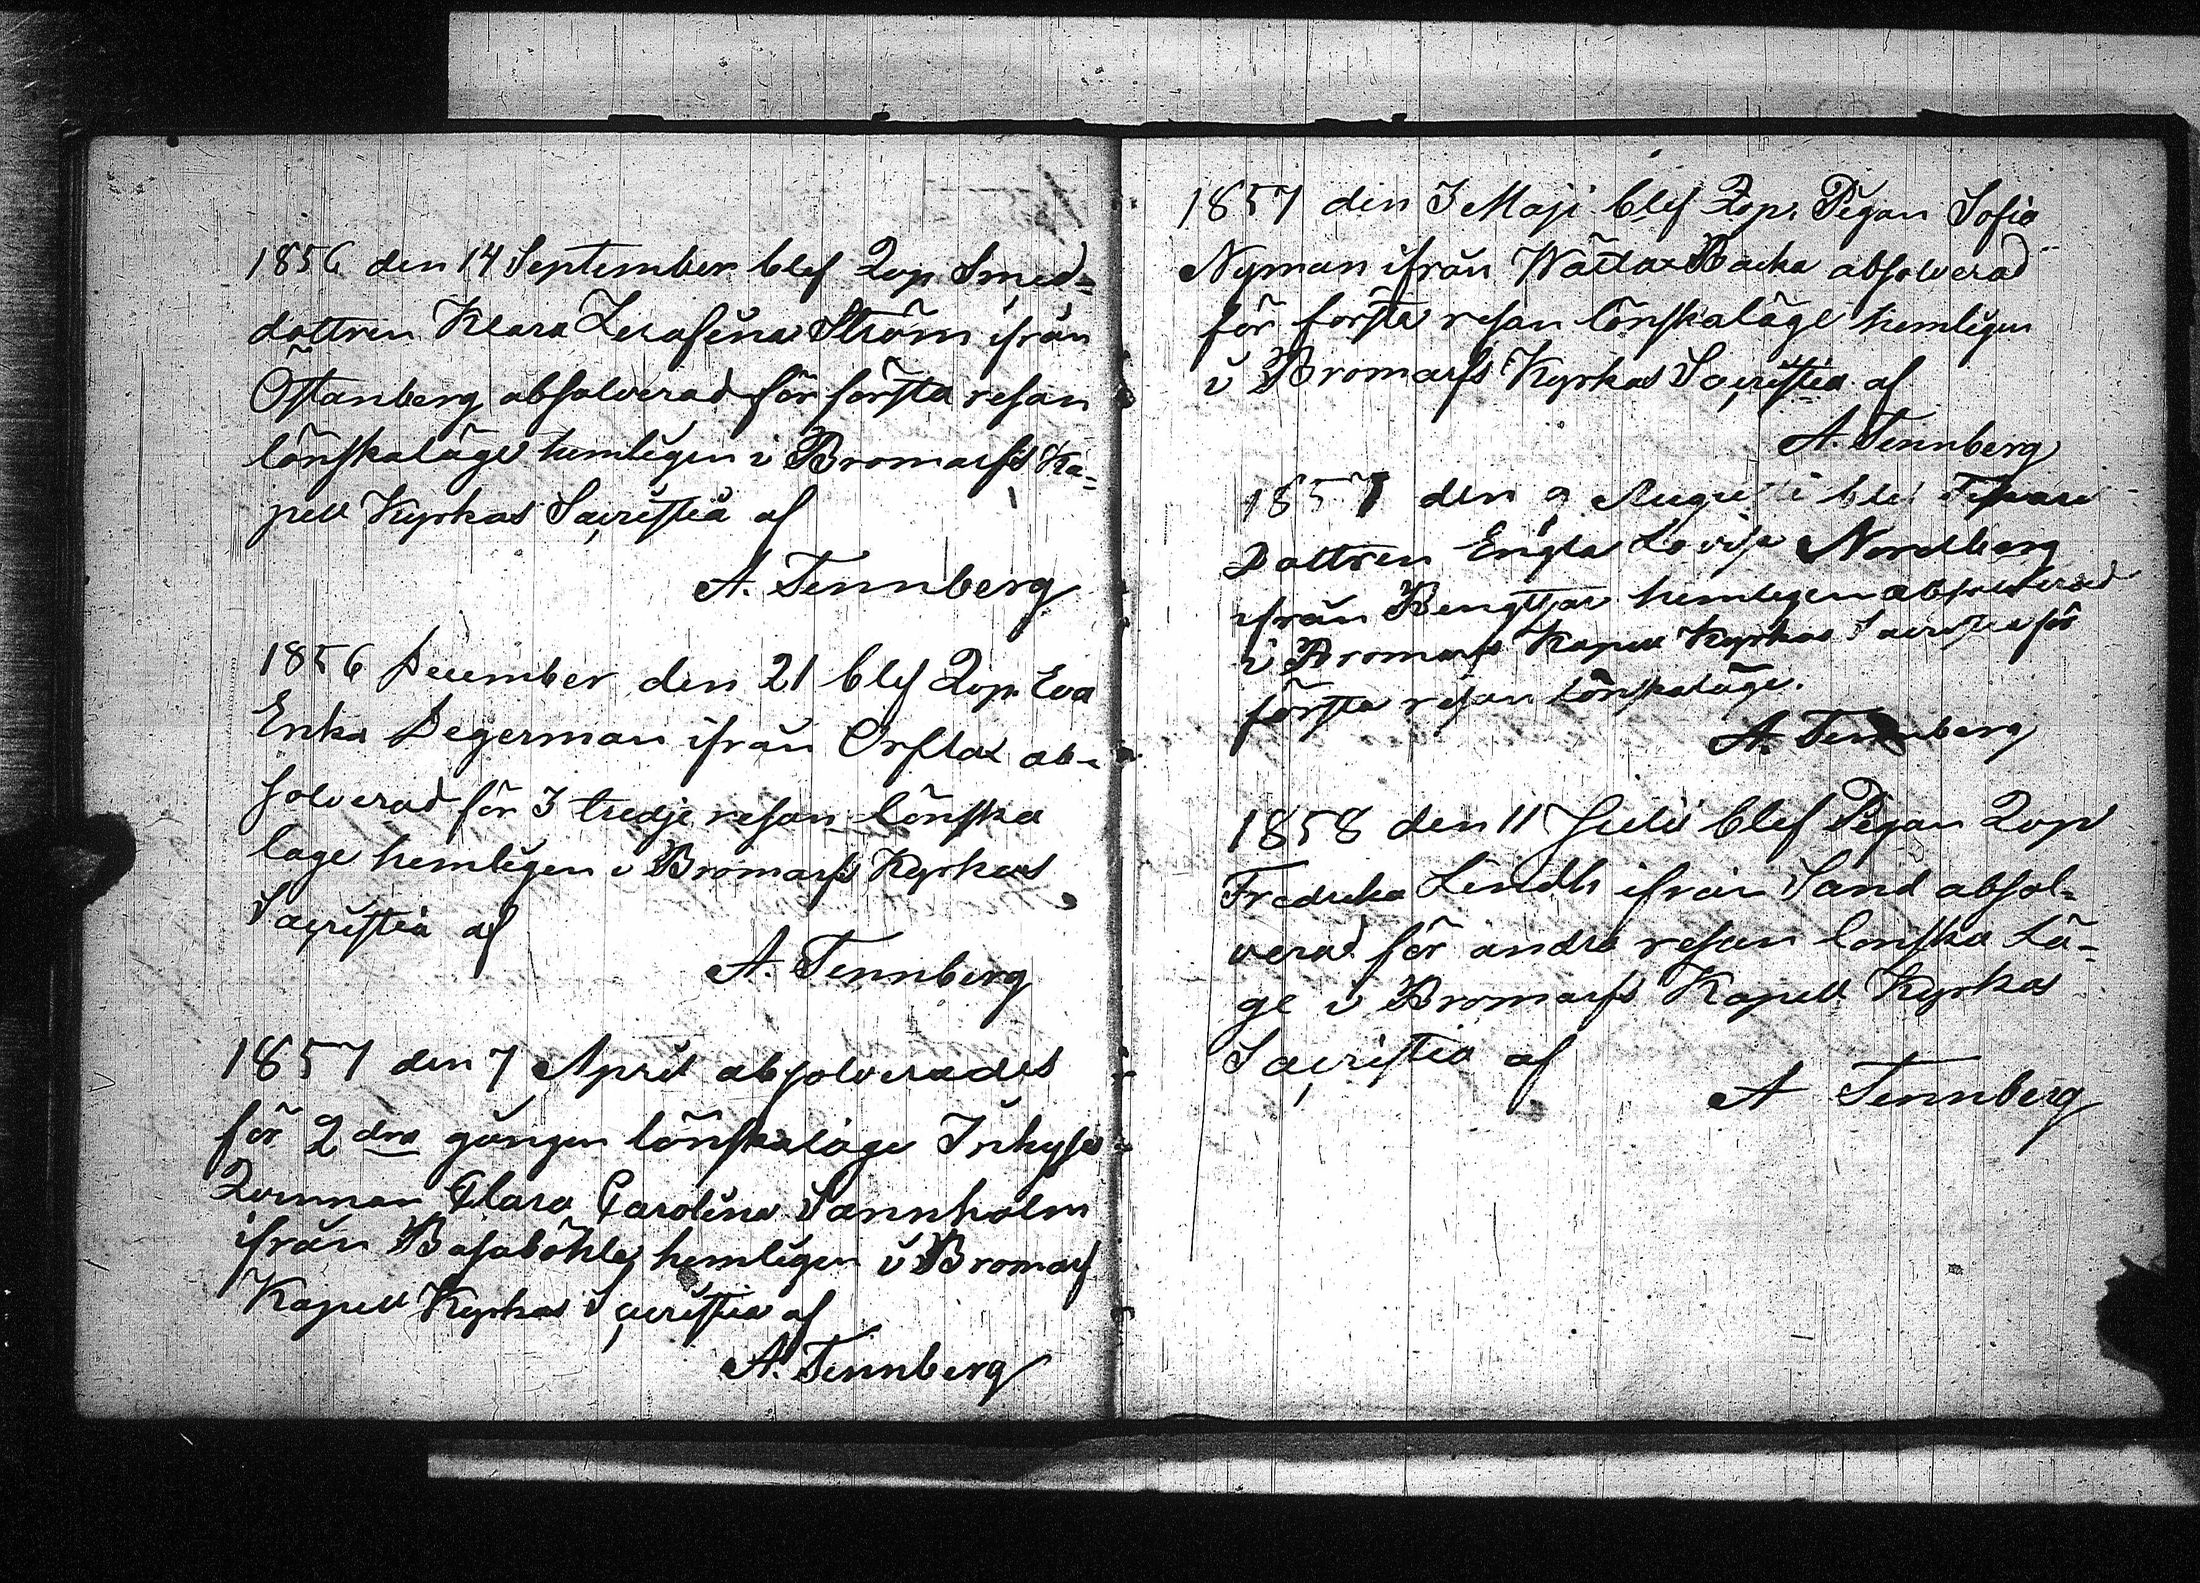 1856 den 14 September blef Qvp Smed=
dottren Klara Serafina Ström ifrån
Östanberg absolverad för första resan
lönskaläge hemligen i Bromarfs Ka=
pell Kyrkas Sacristia af
A. Tennberg
1856 December den 21 blef Qvp. Eva
Erika Degerman ifrån Orslax ab=
solverad för 3 tredje resan lönska
läge hemligen i Bromarfs Kyrkas
Sacristia af
A. Tennberg
1857 den 7 April absolverades
för 2 dra gången lönskaläge Inhyses
Qvinnan Clara Carolina Sannholm
ifrån Basaböhle hemligen i Bromarf
Kapell Kyrkas Sacristia af
A. Tennberg
1857 den 3 Maji blef Qvp. Pigan Sofia
Nyman ifrån Wättlax Backa absolverad
för första resan lönskaläge hemligen
i Bromarfs Kyrkas Sacristia af
A. Tennberg
1857 den 9 Augusti blef
Dottren Engla Lovisa Nordberg
ifrån Bengtsar hemligen absolverad
i Bromarfs Kapell Kyrkas Sacristia för
första resan lönskaläge.
A. Tennberg
1858 den 11 Julii blef Pigan Qvp
Fredrika Lindh ifrån Sand absol=
verad för andra resan lönska Lä=
ge i Bromarfs Kapell Kyrkas
Sacristia af
A Tennberg